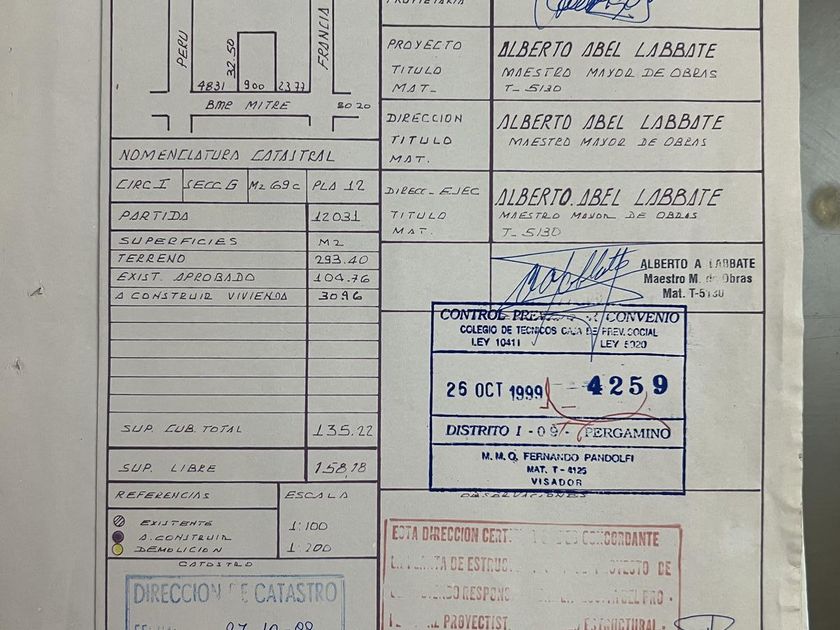 PERU
32.50
FRANCIA
4831 900 23.77
BME MITRE 80 20
NOMENCLATURA CATASTRAL
CIRC I SECC. G Mz 69c PLA 12
PARTIDA 12031
SUPERFICIES M2
TERRENO 293.40
EXIST. APROBADO 104.76
A CONSTRUIR VIVIENDA 3096
SUP. CUB. TOTAL 135.22
SUP. LIBRE 158,18
REFERENCIAS ESCALA
EXISTENTE 1:100
A. CONSTRUIR
DEMOLICION 1:200
CATASTRO
DIRECCION DE CATASTRO
PROYECTO ALBERTO ABEL LABBATE
TITULO MAESTRO MAYOR DE OBRAS
MAT_ T_ 5130
DIRECCION ALBERTO ABEL LABBATE
TITULO MAESTRO MAYOR DE OBRAS
MAT.
DIREC_ EJEC ALBERTO ABEL LABBATE
TITULO MAESTRO MAYOR DE OBRAS
MAT. T_ 5130
ALBERTO A LABBATE
Maestro M. de Obras
Mat. T-5130
CONTROL CONVENIO
COLEGIO DE TECNICOS CAJA DE PREV. SOCIAL
LEY 10411 LEY 5920
26 OCT 1999 4259
DISTRITO I - 09 - PERGAMINO
M. M. O. FERNANDO PANDOLFI
MAT. T - 4125
VISADOR
OBSERVACIONES
ESTA DIRECCION CONCORDANTE
PLANTA DE PROYECTO DE
RESPONS PRO -
PROYECTIST ESTRUCTURAL -